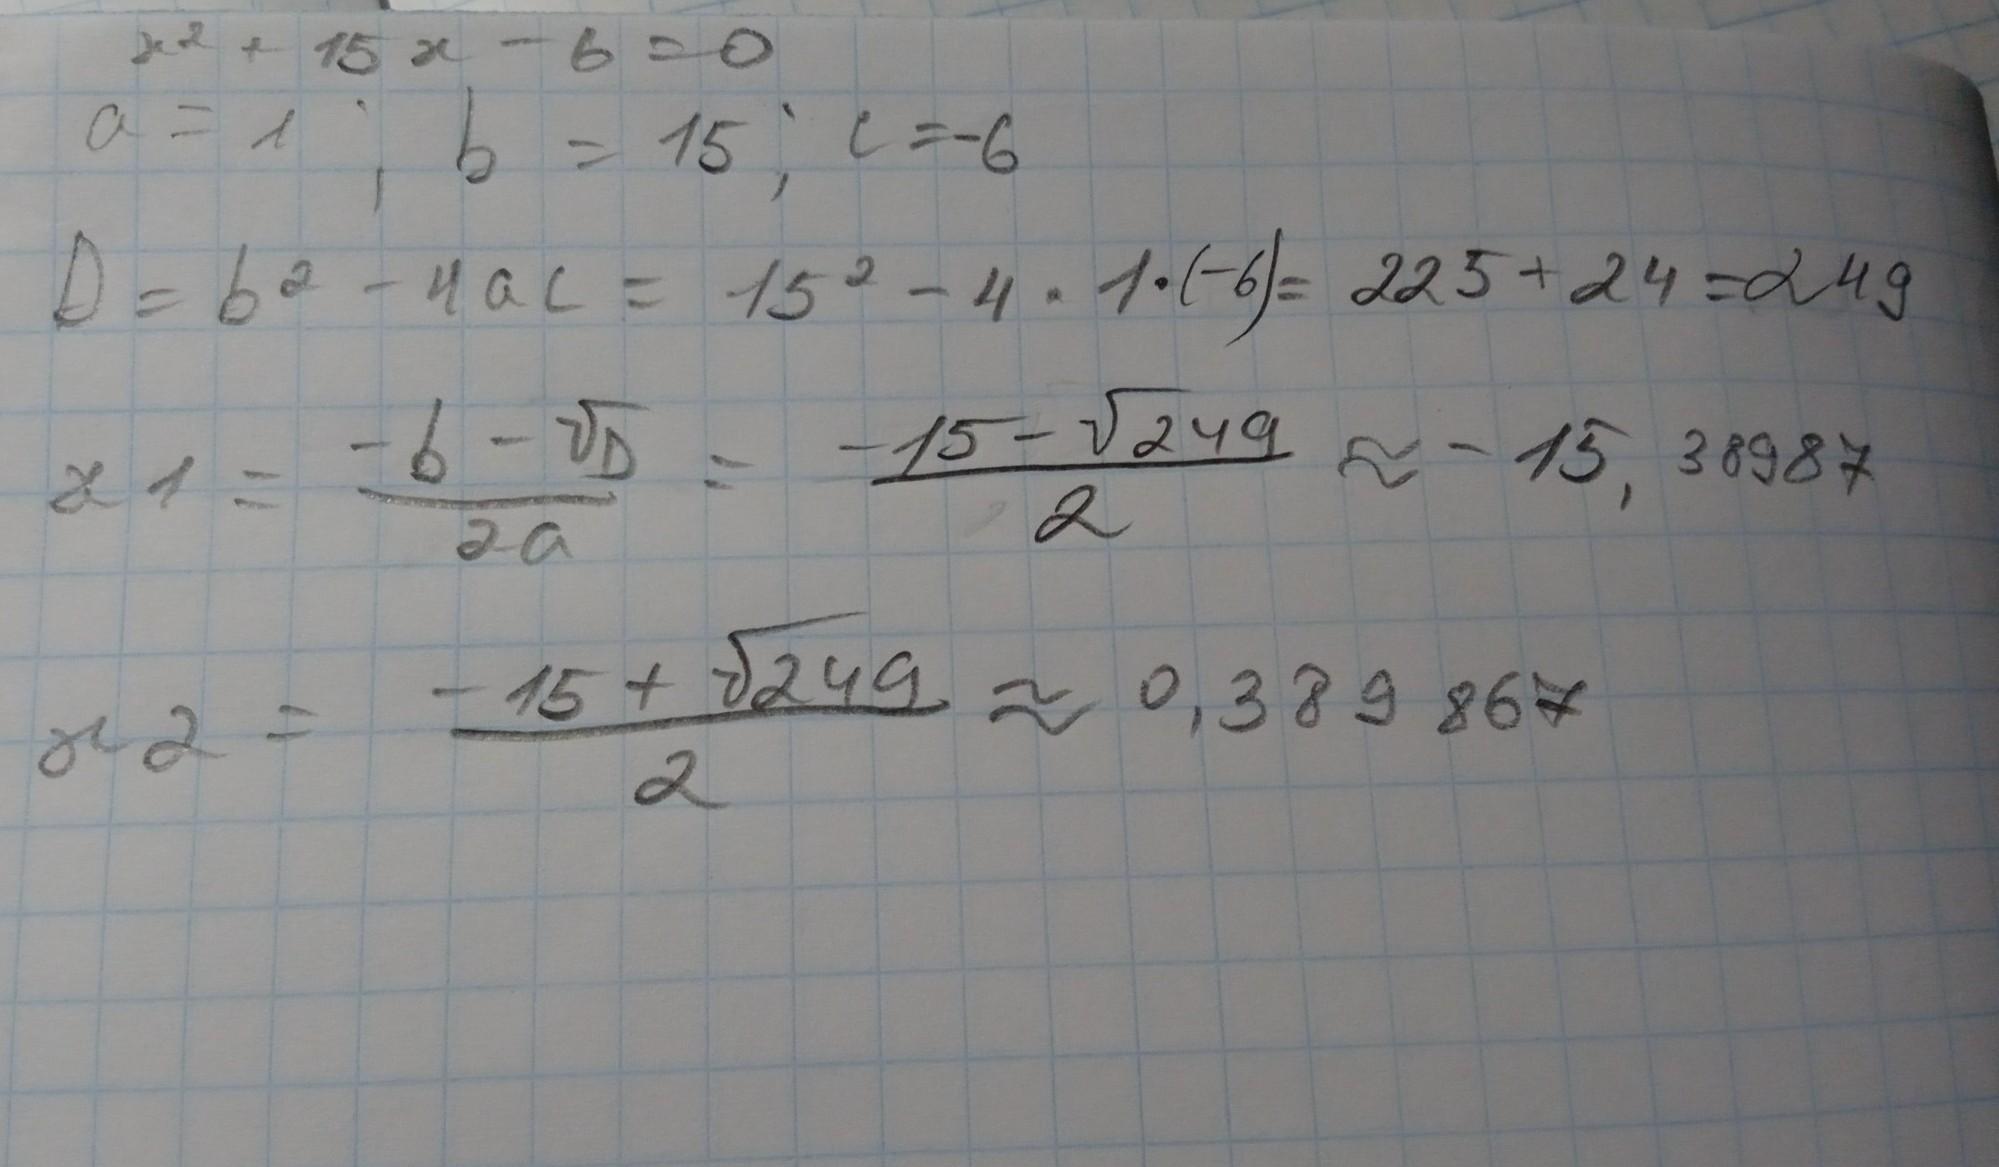 x² + 15x - 6 = 0
a = 1 ; b = 15 ; c = -6
D = b² - 4ac = 15² - 4 · 1 · (-6) = 225 + 24 = 249
x1 = (-b - √D) / 2a = (-15 - √249) / 2 ≈ -15,38987
x2 = (-15 + √249) / 2 ≈ 0,389867